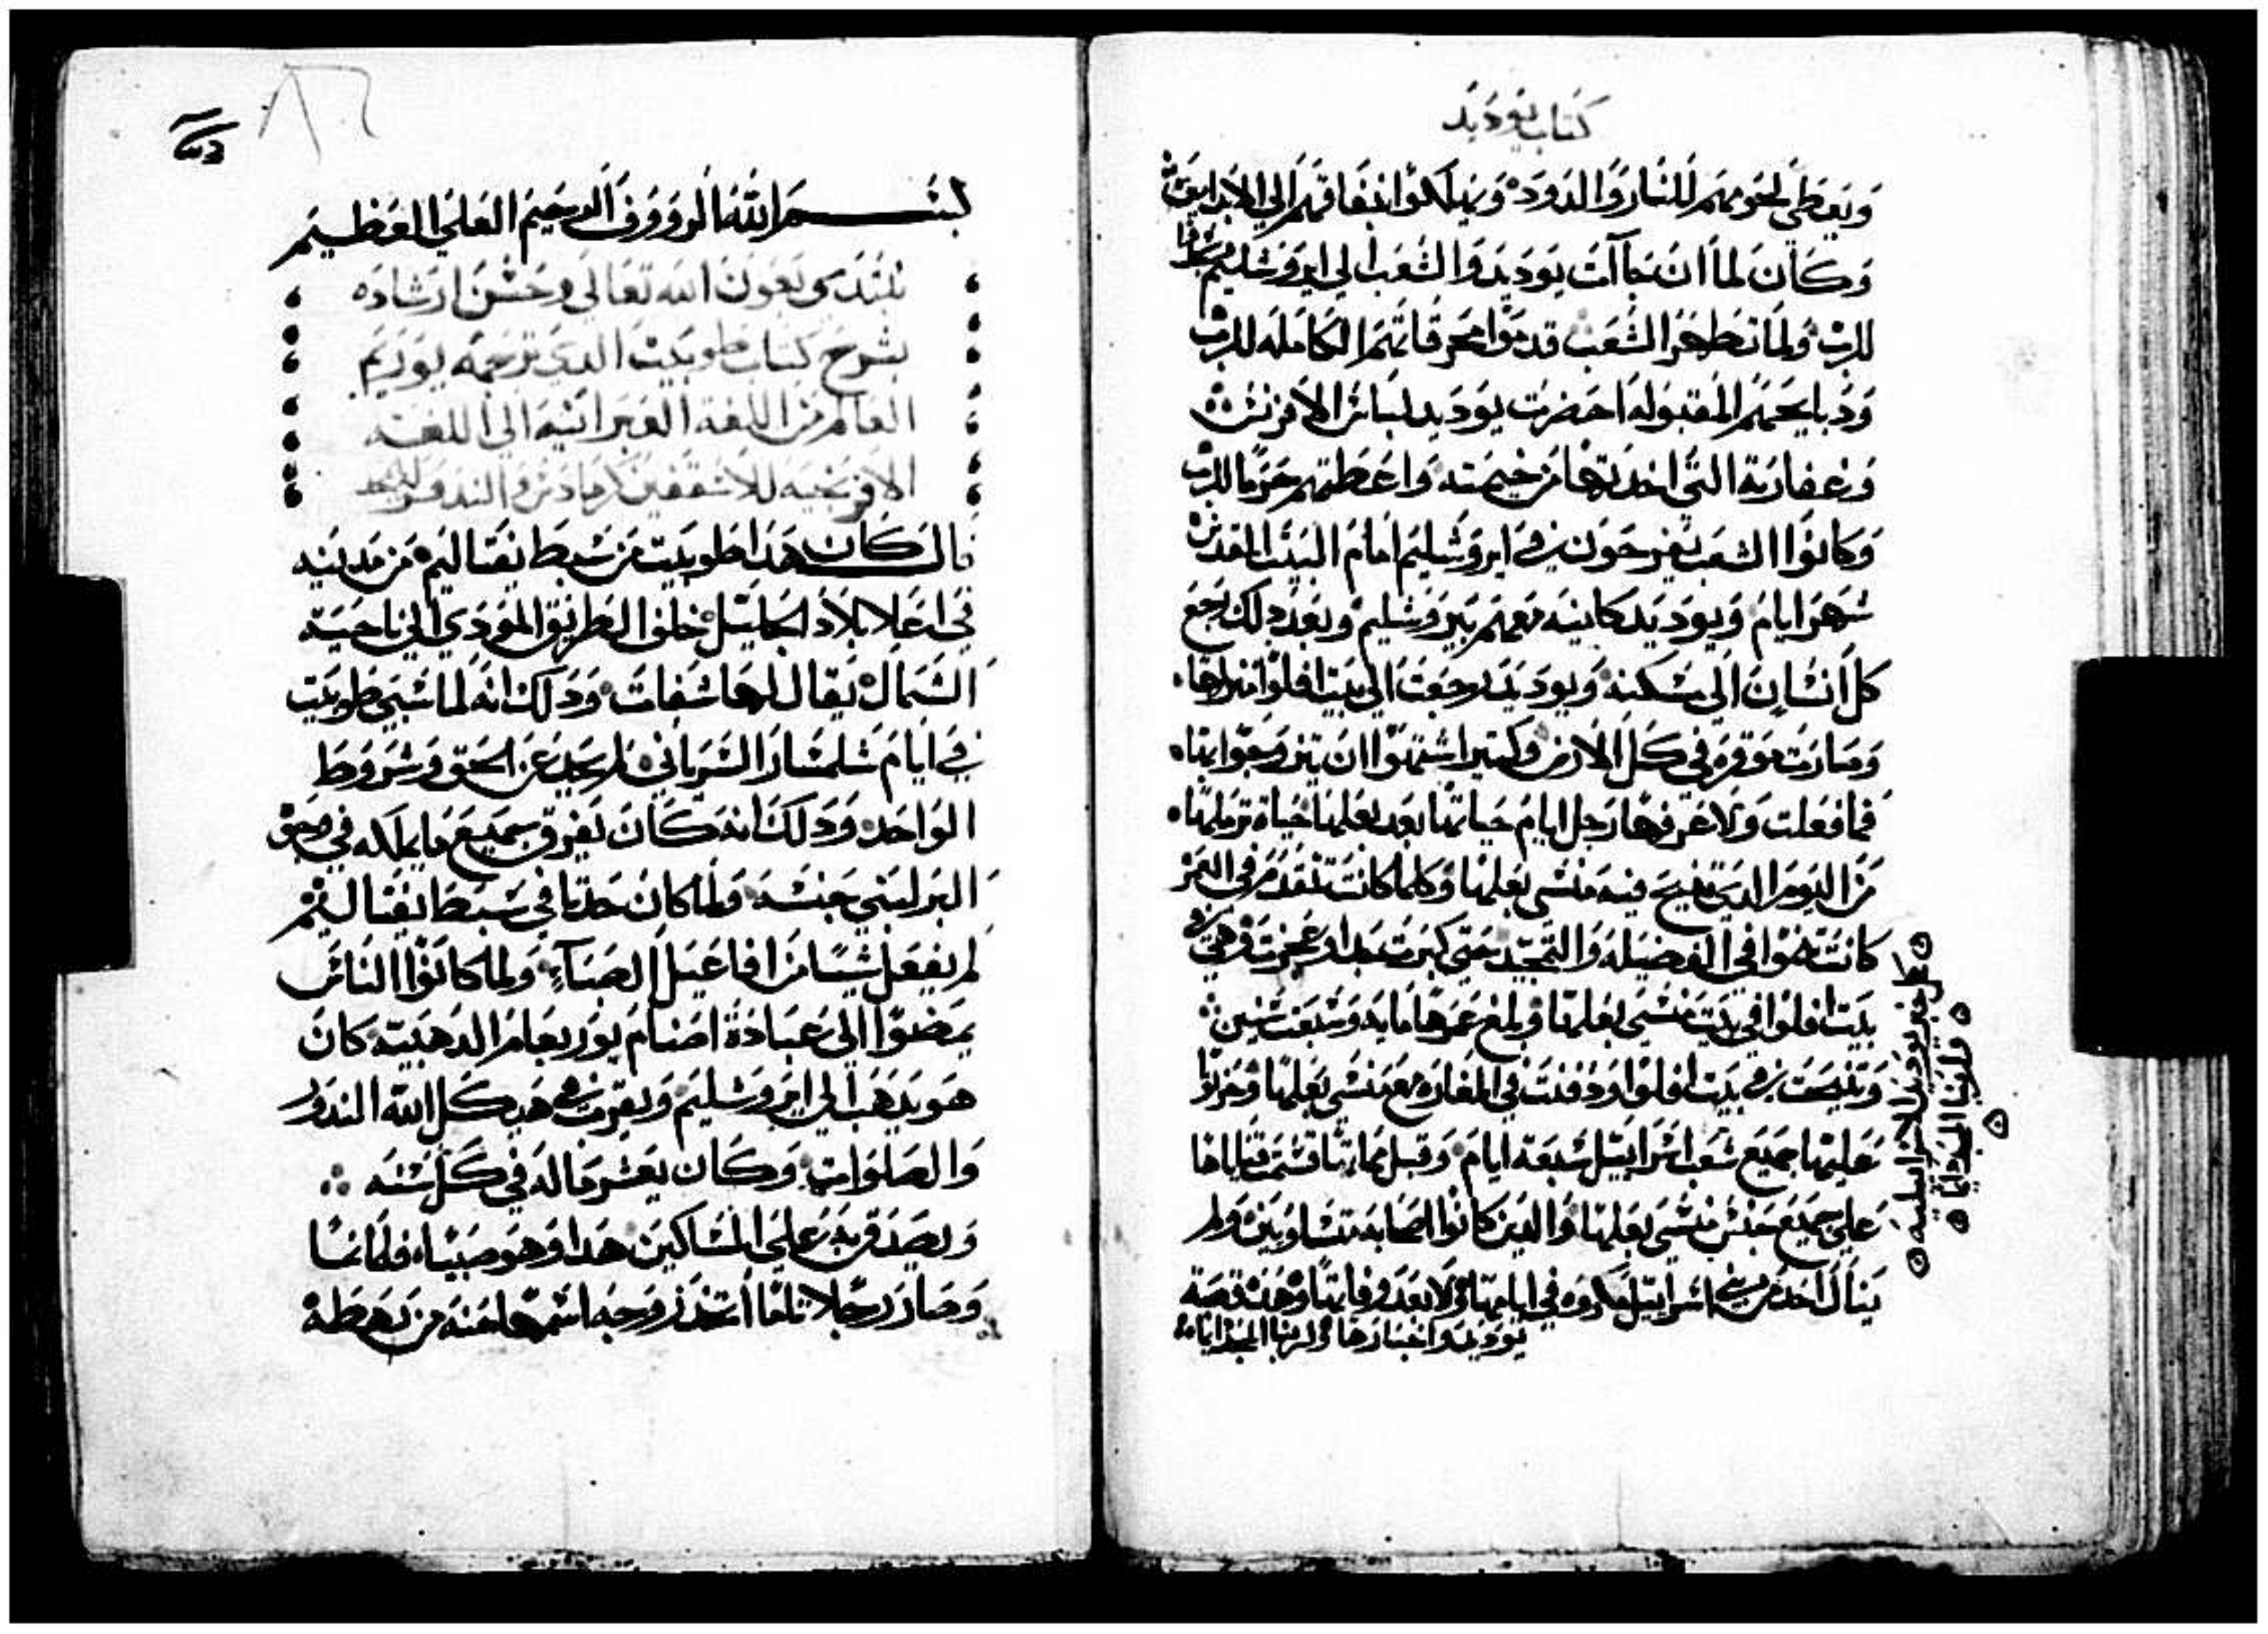 كتاب يوديد
ويعطي لحومهم للنار والدود ويهلكوا بنفاقهم الي الابد امين
وكان لما ان جاآت يوديد والشعب الي ايروشليم سجدوا
للرب ولما تطهر الشعب قدموا محرقاتهم الكامله للرب
ودبايحهم المقبوله احضرت يوديد لباس الافرنس
وغفارته التي اخدتها من خيمته واعطتهم حرما للرب
وكانوا الشعب يفرحون في ايروشليم امام البيت المقدس
شهر ايام ويوديد كاينه معهم بيروشليم وبعد دلك رجع
كل انسان الي مسكنه ويوديد رجعت الي بيت افلوا منزلها
وصارت موقره في كل الارض وكتير اشتهوا ان يتزوجوا بها
فما فعلت ولا عرفها رجل ايام حياتها بعد بعلها حياة ترملها
من اليوم الدي تنيح فيه منشي بعلها وكلما كانت تتقدم في العمر
كانت تنموا في الفضيله والتمجيد حتي كبرت جدا وعجزت وهي في
بيت افلوا في بيت منشي بعلها وبلغ عمرها مايه وسبعت سنين
وتنيحت في بيت افلوا ودفنت في المغاره مع منشي بعلها وحزنوا
عليها جميع شعب اسراييل سبعة ايام وقبل مماتها قسمت قناياها
علي جميع جنس منشي بعلها والدين كانوا اصحابه متساويين ولم
ينال احد من بني اسراييل مكروه في ايامها ولا بعد وفاتها وهده قصة
يوديد واخبارها ولربنا المجد دايما
كمل خبر يوديد الاسراييليه
ولربنا المجد دايما
بسم الله الرووف الرحيم العلي العظيم
نبتدي بعون الله تعالي وحسن ارشاده
بشرح كتاب طوبيت الدي ترجمه يوريم
العالم من اللغة العبرانيه الي اللغه
الافرنجيه للاسقفين
قال كان هدا طوبيت من سبط نفتاليم من مدينه
في اعلا بلاد الجليل خلف الطريق المودي الي ناحية
الشمال يقال لها شفات ودلك انه لما سبي طوبيت
في ايام شلمنسار السرياني لم يحيد عن الحق وشروط
الواحد ودلك انه كان يفرق جميع ما يملكه في صحن
البر لبني جنسه ولما كان حدتا في سبط نفتاليم
لم يفعل شيا من افاعيل الصباء ولما كانوا الناس
يمضوا الي عبادة اصنام يوربعام الدهبية كان
هو يدهب الي ايروشليم ويقرب في هيكل الله الندور
والصلوات وكان يعشر ماله في كل سنه
ويصدق به علي المساكين هدا وهو صبيا فلما نشا
وصار رجلا تاما اتخد زوجه اسمها حنه من رهطه